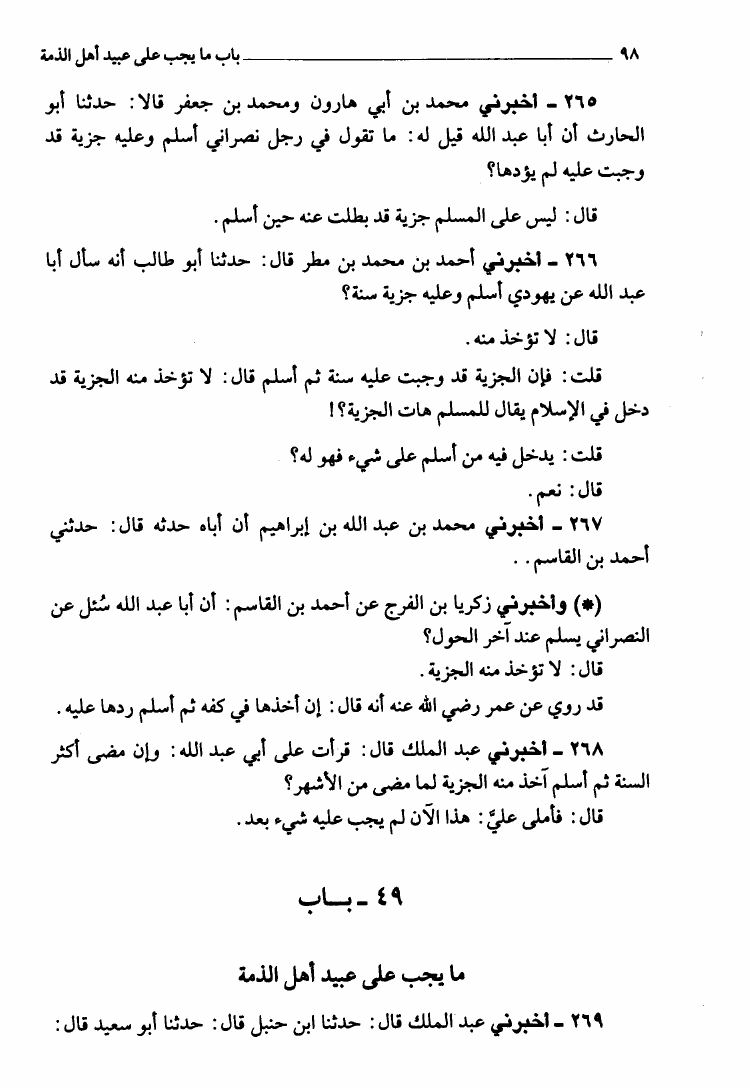 ٩٨ ـــــــــــــــــــــــــــــــــ باب ما يجب على عبيد أهل الذمة
٢٦٥ - أخبرني محمد بن أبي هارون ومحمد بن جعفر قالا: حدثنا أبو
الحارث أن أبا عبد الله قيل له: ما تقول في رجل نصراني أسلم وعليه جزية قد
وجبت عليه لم يؤدها؟
قال: ليس على المسلم جزية قد بطلت عنه حين أسلم.
٢٦٦ - أخبرني أحمد بن محمد بن مطر قال: حدثنا أبو طالب أنه سأل أبا
عبد الله عن يهودي أسلم وعليه جزية سنة؟
قال: لا تؤخذ منه.
قلت: فإن الجزية قد وجبت عليه سنة ثم أسلم قال: لا تؤخذ منه الجزية قد
دخل في الإسلام يقال للمسلم هات الجزية؟!
قلت: يدخل فيه من أسلم على شيء فهو له؟
قال: نعم.
٢٦٧ - أخبرني محمد بن عبد الله بن إبراهيم أن أباه حدثه قال: حدثني
أحمد بن القاسم. .
(*) وأخبرني زكريا بن الفرج عن أحمد بن القاسم: أن أبا عبد الله سُئل عن
النصراني يسلم عند آخر الحول؟
قال: لا تؤخذ منه الجزية.
قد روي عن عمر رضي الله عنه أنه قال: إن أخذها في كفه ثم أسلم ردها عليه.
٢٦٨ - أخبرني عبد الملك قال: قرأت على أبي عبد الله: وإن مضى أكثر
السنة ثم أسلم آخذ منه الجزية لما مضى من الأشهر؟
قال: فأملى عليَّ: هذا الآن لم يجب عليه شيء بعد.
٤٩ - بـــاب
ما يجب على عبيد أهل الذمة
٢٦٩ - أخبرني عبد الملك قال: حدثنا ابن حنبل قال: حدثنا أبو سعيد قال: